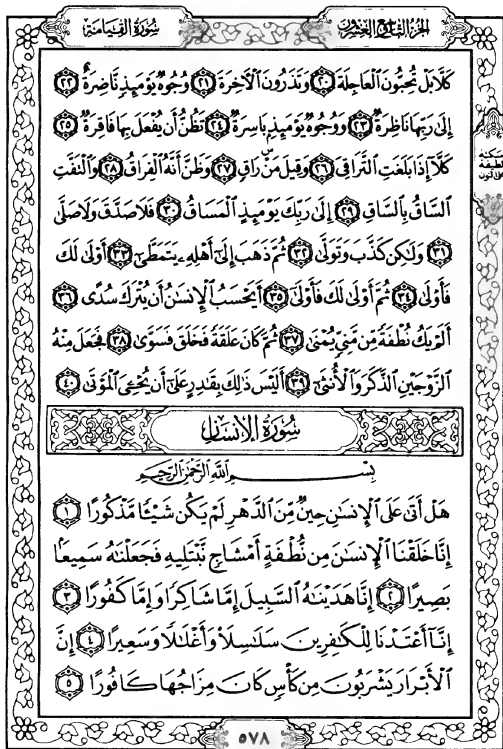 سُورَةُ القِيَامَةِ
الجُزْءُ التَّاسِعُ وَالعِشْرُونَ
كَلَّا بَلْ تُحِبُّونَ الْعَاجِلَةَ ٢٠ وَتَذَرُونَ الْآخِرَةَ ٢١ وُجُوهٌ يَوْمَئِذٍ نَّاضِرَةٌ ٢٢
إِلَىٰ رَبِّهَا نَاظِرَةٌ ٢٣ وَوُجُوهٌ يَوْمَئِذٍ بَاسِرَةٌ ٢٤ تَظُنُّ أَن يُفْعَلَ بِهَا فَاقِرَةٌ ٢٥
كَلَّا إِذَا بَلَغَتِ التَّرَاقِيَ ٢٦ وَقِيلَ مَنْ ۜ رَاقٍ ٢٧ وَظَنَّ أَنَّهُ الْفِرَاقُ ٢٨ وَالْتَفَّتِ
السَّاقُ بِالسَّاقِ ٢٩ إِلَىٰ رَبِّكَ يَوْمَئِذٍ الْمَسَاقُ ٣٠ فَلَا صَدَّقَ وَلَا صَلَّىٰ
٣١ وَلَٰكِن كَذَّبَ وَتَوَلَّىٰ ٣٢ ثُمَّ ذَهَبَ إِلَىٰ أَهْلِهِ يَتَمَطَّىٰ ٣٣ أَوْلَىٰ لَكَ
فَأَوْلَىٰ ٣٤ ثُمَّ أَوْلَىٰ لَكَ فَأَوْلَىٰ ٣٥ أَيَحْسَبُ الْإِنسَانُ أَن يُتْرَكَ سُدًى ٣٦
أَلَمْ يَكُ نُطْفَةً مِّن مَّنِيٍّ يُمْنَىٰ ٣٧ ثُمَّ كَانَ عَلَقَةً فَخَلَقَ فَسَوَّىٰ ٣٨ فَجَعَلَ مِنْهُ
الزَّوْجَيْنِ الذَّكَرَ وَالْأُنثَىٰ ٣٩ أَلَيْسَ ذَٰلِكَ بِقَادِرٍ عَلَىٰ أَن يُحْيِيَ الْمَوْتَىٰ ٤٠
سُورَةُ الإِنسَانِ
بِسْمِ اللَّهِ الرَّحْمَٰنِ الرَّحِيمِ
هَلْ أَتَىٰ عَلَى الْإِنسَانِ حِينٌ مِّنَ الدَّهْرِ لَمْ يَكُن شَيْئًا مَّذْكُورًا ١
إِنَّا خَلَقْنَا الْإِنسَانَ مِن نُّطْفَةٍ أَمْشَاجٍ نَّبْتَلِيهِ فَجَعَلْنَاهُ سَمِيعًا
بَصِيرًا ٢ إِنَّا هَدَيْنَاهُ السَّبِيلَ إِمَّا شَاكِرًا وَإِمَّا كَفُورًا ٣
إِنَّا أَعْتَدْنَا لِلْكَافِرِينَ سَلَاسِلَا وَأَغْلَالًا وَسَعِيرًا ٤ إِنَّ
الْأَبْرَارَ يَشْرَبُونَ مِن كَأْسٍ كَانَ مِزَاجُهَا كَافُورًا ٥
سكتة
لطيفة
على النون
٥٧٨